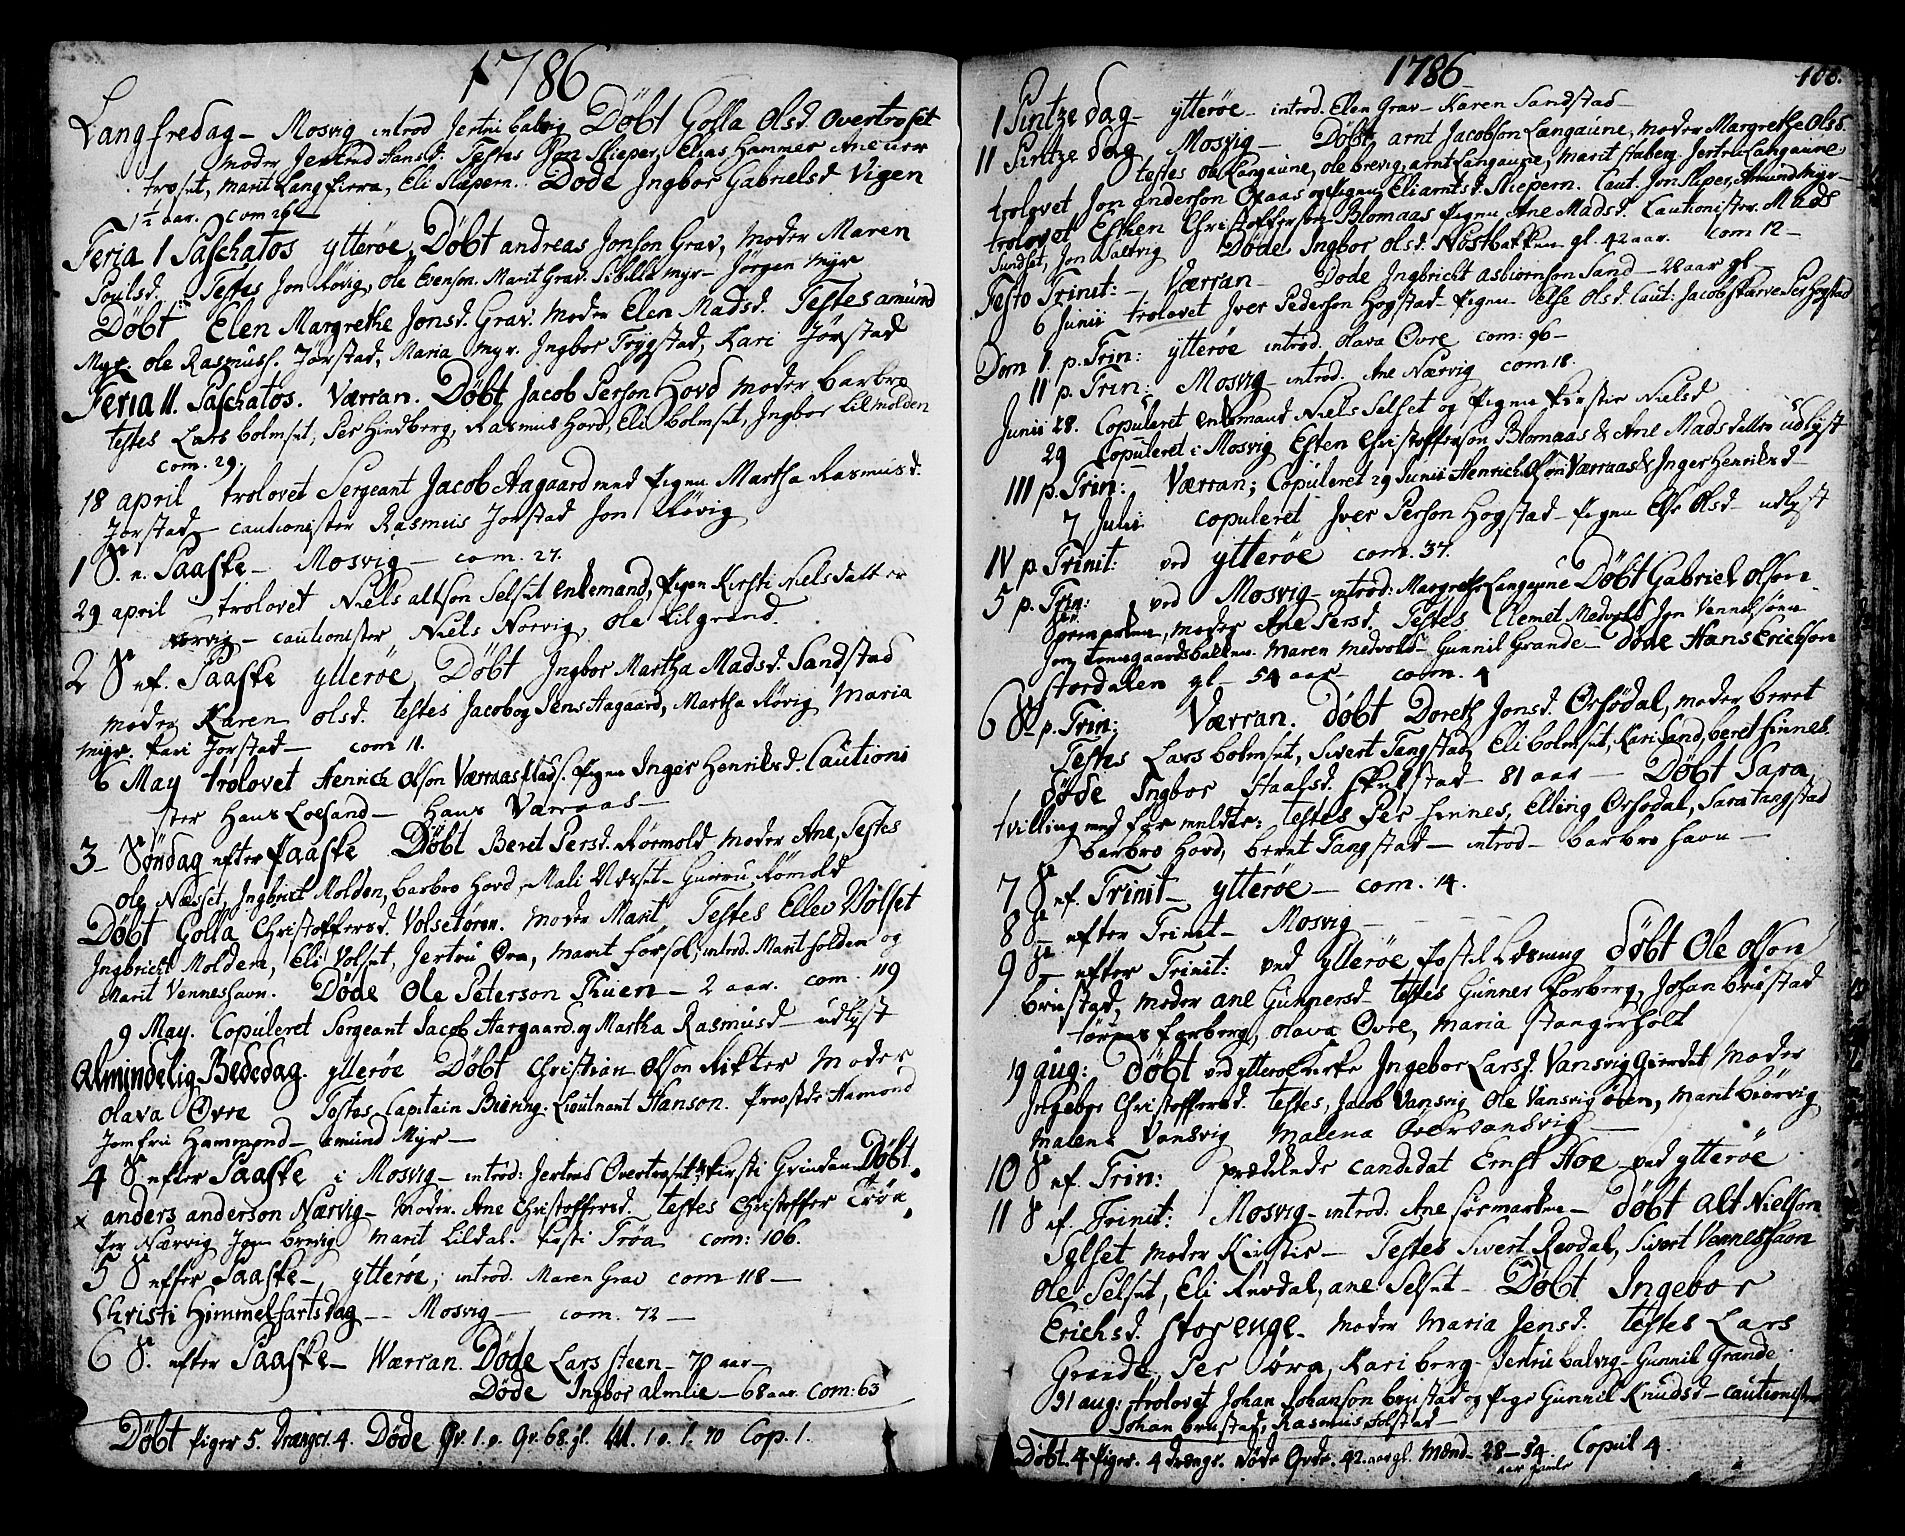 1786
Langfredag – Mosvig introd Jertru balvig Døbt Golla Olsd. Overtroset
moder Jertrud Hansd. Testes Jon Skieper, Elias Hammer Ane over
troset, Marit Langfierra, Eli Skepern. Døde Ingbor Gabrielsd Vigen
1½ aar. Com 26
Feria 1 Paschatos ytterøe, Døbt andreas Jonson Grav, moder Maren
Poulsd. Testes Jon Røvig, Ole Evenson. Marit Grav. Sibilla myr – Jørgen Myr
Døbt Elen Margrethe Jonsd. Grav. Moder Elen Madsd. Testes amund
Myr. Ole Rasmuss. Jørstad, Maria myr. Ingbor Trygstad, Kari Jørstad
Feria II. Paschatos. Værran. Døbt Jacob Person Hovd moder barbro
testes Lars bolmset, Per Hindberg, Rasmus Hovd, Eli bolmset, Ingbor Lilmolden
com. 29.
18 april trolovet Sergeant Jacob Aagaard med Pigen Martha Rasmusd.
Jørstad – cautionister Rasmus Jorstad Jon Røvig
1 S. e. Paaske – Mosvig – com. 27.
29 april trolovet Niels altson Selset enkemand, Pigen Kirsti Nielsdatter
Norvig – cautionister Niels Norvig, Ole Lilgrand.
2 S ef. Paaske ytterøe, Døbt Ingbor Martha Madsd. Sandstad
moder Karen Olsd. testes Jacob og Jens Aagaard, Martha Røvig Maria
myr. Kari Jorstad – com 11.
6 May trolovet Henrich Olson Værraas Pigen Inger Henriksd. Cautioni
ster Hans Loesand – Hans Værraas –
3 – Søndag efter Paaske Døbt Beret Persd. Rømold Moder Ane, Testes
Ole Næsset, Ingbrict Molden, barbro Hovd, Mali Næsset – Guru Rømold
Døbt Golla Christoffersd. Volsetøren. Moder Marit Testes Ellev Vølset
Ingbricht Molden, Eli Volset, Jertru Øra, Marit Forsol, introd. Marit holden og
Marit Venneshavn. Døde Ole Peterson Thuen – 2 aar. com. 119
9 May. Copuleret Sergeant Jacob Aargaard og Martha Rasmusd – udlyst
Almindelig Bededag. ytterøe Døbt Christian Olson Rikter Moder
Olava Øvre Testes Capitain Biering. Lieutnant Hanson. Provstde Hamond
Jomfru Hammond – amund Myr –
4 S efter Paaske i Mosvig – introd: Jertrud Overtroset, Kirsti Grinden Døbt
x anders anderson Nærvig – Moder. Ane Christoffersd. testes Christoffer Trøa
Per Nærvig Jon brevig Marit Lildal. Kirsti Trøa com: 106.
5 S efter Paaske – ytterøe, introd. Maren Grav com 118 –
Christi Himmelfartsdag – – Mosvig – com. 72 –
6 S. efter Paaske – Wærran. Døde Lars steen – 70 aar –
Døde Ingbor almlie – 68 aar. Com: 63
Døbt Piger 5. Drænger. 4. Døde Qv. 1. o. Qv. 68. gl. M. 1 o. 1. 70 Cop. 1.
1786
108.
1 Pintze dag – ytterøe – introd. Elen Grav – Karen Sandstad –
11 Pintze dag Mosvig – Døbt arnt Jacobson Langaune, moder Margrethe Olsd.
testes Ole Langaune, ole brevig, arnt Langaune, marit staberg Jertru Langaune
trolovet Jon Anderson Opaas og Pigen Eli arntsd. Skiepern. Caut. Jon Skiper, Amund Myr –
trolovet Esten Christofferson Blomaas Pigen Ane Madsd. Cautionister. Mads
Sundset, Jon Saltvig Døde Ingbor Olsd. Nostbakken gl. 42 aar. com 12 –
Festo Trinit: – Værran – Døde Ingbricht asbiørnson Sand – 28 aar gl –
6 Junii trolovet Iver Pederson Hogstad Pigen – Else Olsd. Caut: Jacob Skarve Per Hogstad
Dom 1. p. Trin: ytterøe introd. Olava Øvre com: 96 –
11 p. Trin: Mosvig – introd. Ane Nærvig com 18.
Junii 28. Copuleret enkemand Niels Selset og Pigen Kirstie Nielsd
29 Copuleret i Mosvig Esten Christofferson Blomaas & Ane Madsdatter udlyst
III p. Trin: Værran; Copuleret 29 Junii Henrich Olson Værraas & Inger Henriksd –
7 Julii copuleret Iver Person Hogstad – Pigen Else Olsd – udlyst
IV p. Trinit: ved ytterøe com. 37.
5 p. Trin: ved Mosvig – introd: Margrethe Langaune Døbt Gabriel Olson
Sørmarken, moder Ane Persd. Testes Clemet Medvold Jon Vennesønn
Jon tonnsgaardsbakken. Maren Medvold – Gunnil Grande – Døde Hans Erichson
stordalen gl – 54 aar com. 4
6 S p. Trin: Værran. Døbt Doreth Jonsd. Orsødal, moder beret
Testes Lars bolmset, Sivert Tangstad, Eli bolmset, Kari Sand, beret hinnes.
Døde Ingbor Staalsd. Skelstad – 81 aar – Døbt Sara
tvilling med før meldte: testes Per hinnes, Elling Orsodal, Sara tangstad
barbro Hovd, beret Tangstad – introd – barbro havn –
7 S ef. Trinit – ytterøe – com. 14.
8 S efter Trinit – Mosvig –
9 S – efter Trinit: ved ytterøe Postil Læsning Døbt Ole Olson
brustad, moder ane Gunnersd – testes Gunner Forberg, Johan brustad
tørres forberg, Olava Øvre, Maria stangerholt
19 aug: Døbt ved ytterøe kirke Ingebor Larsd. Vansvig Gierdet Moder
Ingebor Christoffersd. testes, Jacob Vansvig Ole Vansvigøien, Marit biørvig
Malena Vansvig Malena Overvansvig –
10 S ef. Trin: prædikede candidat Ernst Hoe ved ytterøe
11 S ef. Trinit: Mosvig – introd: Ane sørmarken – Døbt Alt Nielson
Selset moder Kirstie – Testes Sivert Revdal, Sivert Venneshavn
Ole Selset, Eli Revdal, ane Selset – Døbt Ingebor
Erichsd. storenge. moder Maria Jensd. testes Lars
Grande, Per Øra, Kari berg – Jertru balvig – Gunnil Grande
31 aug: trolovet Johan Johanson brustad og Pige Gunnil Knudsd – cautionister
Johan brustad, Rasmus Folstad –
Døbt. 4 Piger. 4 drænge. døde Qvde. 42 aar gl. Mænd – 28 – 54 Copul 4.
aar gamle